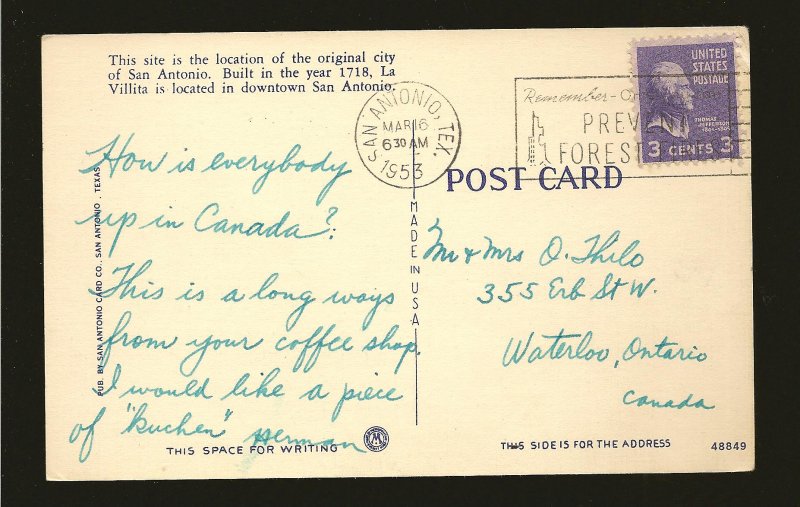 This site is the location of the original city
of San Antonio. Built in the year 1718, La
Villita is located in downtown San Antonio.
SAN ANTONIO, TEX.
MAR 16
6 30 AM
1953
Remember-
PREVEN
FOREST
UNITED
STATES
POSTAGE
THOMAS
JEFFERSON
3 CENTS 3
POST CARD
How is everybody
up in Canada?
This is a long ways
from your coffee shop.
I would like a piece
of "kuchen" Herman
PUB. BY SAN ANTONIO CARD CO., SAN ANTONIO, TEXAS
MADE IN USA
Mr & Mrs O. Thilo
355 Erb St W.
Waterloo, Ontario
Canada
THIS SPACE FOR WRITING
THIS SIDE IS FOR THE ADDRESS
48849